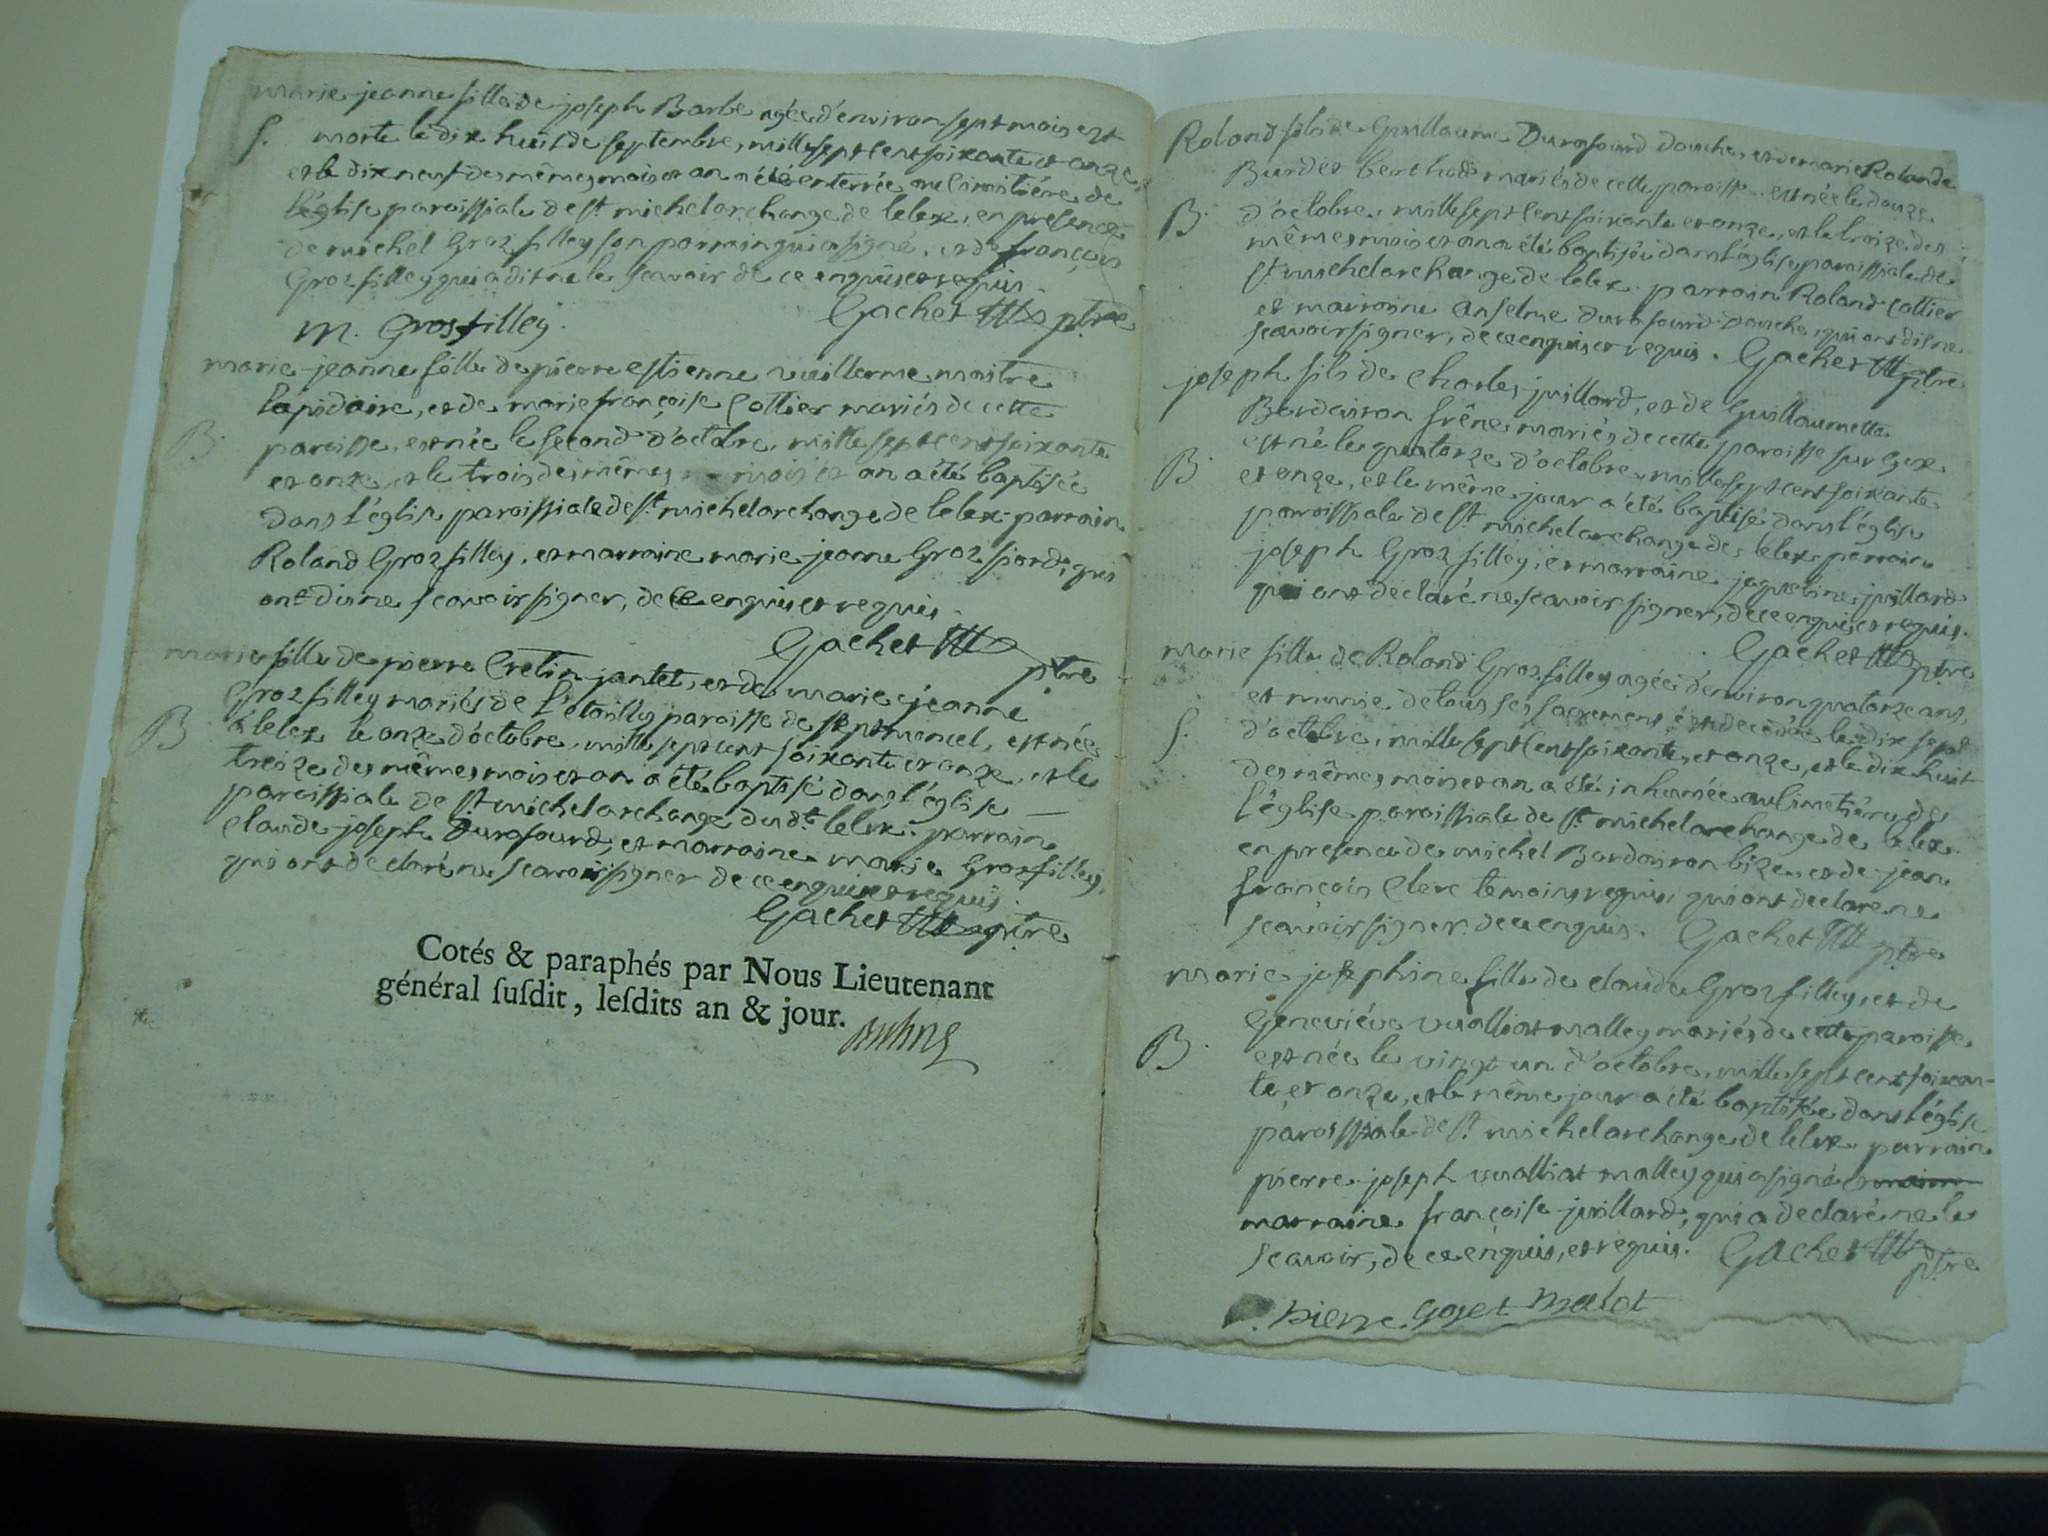 marie jeanne fille de joseph Barbe agée d'environ sept mois est
S. morte le dix huit de septembre, mille sept cent soixante et onze,
et le dix neuf des mêmes mois et an a été enterrée au cimitiére de
l'église paroissiale de st. michel archange de lelex, en presence
de michel Groz filley son parrain qui a signé, et de françois
Groz filley qui a dit ne le scavoir de ce enquis et requis.
Gachet ptre
M. Grosfilley.
marie jeanne fille de pierre estienne vuillerme maitre
lapidaire, et de marie françoise Cottier mariés de cette
B. paroisse, est née le second d'octobre, mille sept cent soixante
et onze, et le trois des mêmes mois et an a été baptisée
dans l'église paroissiale de st. michel archange de lelex. parrain
Roland Groz filley, et marraine marie jeanne Groz fiord, qui
ont dis ne scavoir signer, de ce enquis et requis.
Gachet ptre
marie fille de pierre Cretin jantet, et de marie jeanne
Groz filley mariés de l'étoilly paroisse de septmoncel, est née
B. a lelex le onze d'octobre, mille sept cent soixante et onze, et le
treize des mêmes mois et an a été baptisé dans l'église
paroissiale de st. michel archange dudt. lelex. parrain
claude joseph Durafourd, et marraine marie Grozfilley,
qui ont declaré ne scavoir signer de ce enquis et requis.
Gachet ptre
Cotés & paraphés par Nous Lieutenant
général ſuſdit, leſdits an & jour.
Roland fils de Guillaume Durafourd Douche, et de marie Rolande
Burdet berthod mariés de cette paroisse est née le douze
B. d'octobre, mille sept cent soixante et onze, et le treize des
mêmes mois et an a été baptisée dans l'église paroissiale de
st. michel archange de lelex. parrain Roland Cottier
et marraine anselme Durafourd Douche, qui ont dis ne
scavoir signer, de ce enquis et requis. Gachet ptre
joseph fils de Charles juillard, et de Guillaumette
Bordairon frêne mariés de cette paroisse sur Gex
est né le quatorze d'octobre, mille sept cent soixante
B. et onze, et le même jour a été baptisé dans l'église
paroissiale de st. michel archange de lelex. parrain
joseph Groz filley, et marraine jaqueline juillard
qui ont declaré ne scavoir signer, de ce enquis et requis.
Gachet ptre
marie fille de Roland Groz filley agée d'environ quatorze ans,
et munie de tous ses sacremens, est decedée le dix sept
S. d'octobre, mille sept cent soixante, et onze, et le dix huit
des mêmes mois et an a été inhumée au cimetiére de
l'église paroissiale de st. michel archange de lelex.
en presence de michel Bordairon bizet, et de jean
françois Clerc temoins requis, qui ont declare ne
scavoir signer de ce enquis. Gachet ptre
Marie josephine fille de claude Groz filley, et de
Geneviéve vualliat malley mariés de cette paroisse
B. est née le vingt un d'octobre, mille sept cent soixan-
te et onze, et le même jour a été baptisée dans l'église
paroissiale de st. michel archange de lelex. parrain
pierre joseph vualliat malley qui a signé
marraine françoise juillard, qui a declaré ne le
scavoir, de ce enquis, et requis. Gachet ptre